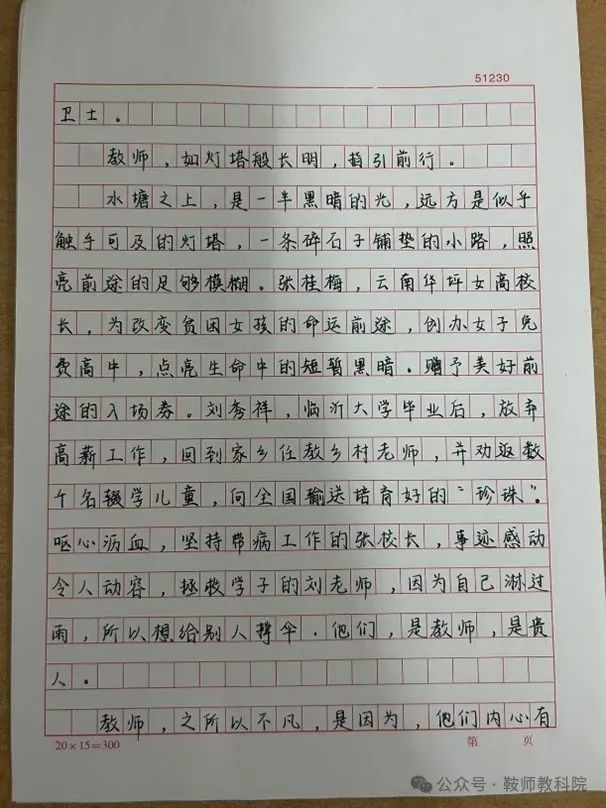 51230
卫士。
教师，如灯塔般长明，指引前行。
水塘之上，是一半黑暗的光，远方是似乎
触手可及的灯塔，一条碎石子铺垫的小路，照
亮前途的足够模糊。张桂梅，云南华坪女高校
长，为改变贫困女孩的命运前途，创办女子免
费高中，点亮生命中的短暂黑暗。赠予美好前
途的入场券。刘秀祥，临沂大学毕业后，放弃
高薪工作，回到家乡任教乡村老师，并劝返数
千名辍学儿童，向全国输送培育好的“珍珠”。
呕心沥血，坚持带病工作的张校长，事迹感动
令人动容，拯救学子的刘老师，因为自己淋过
雨，所以想给别人撑伞。他们，是教师，是贵
人。
教师，之所以不凡，是因为，他们内心有
20×15=300 第 页
公众号·鞍师教科院